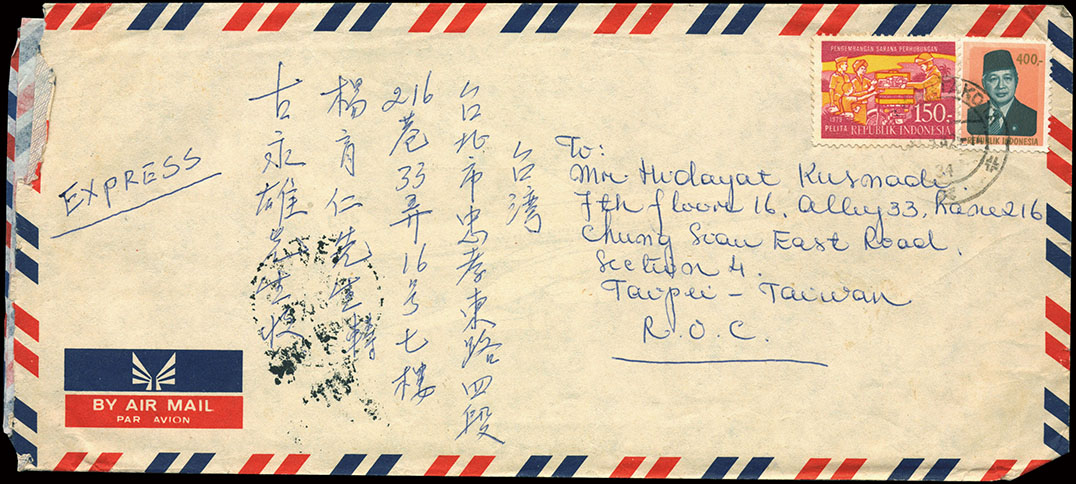 EXPRESS
台湾
台北市忠孝東路四段
216巷33弄16号七樓
楊育仁先生轉
古永雄先生收
PENGEMBANGAN SARANA PERHUBUNGAN
1979
150,-
PELITA REPUBLIK INDONESIA
400,-
REPUBLIK INDONESIA
To:
Mr. Hidayat Kusnadi
7th floor 16, Alley 33, Lane 216
Chung Siau East Road,
Section 4.
Taipei - Taiwan
R.O.C.
BY AIR MAIL
PAR AVION